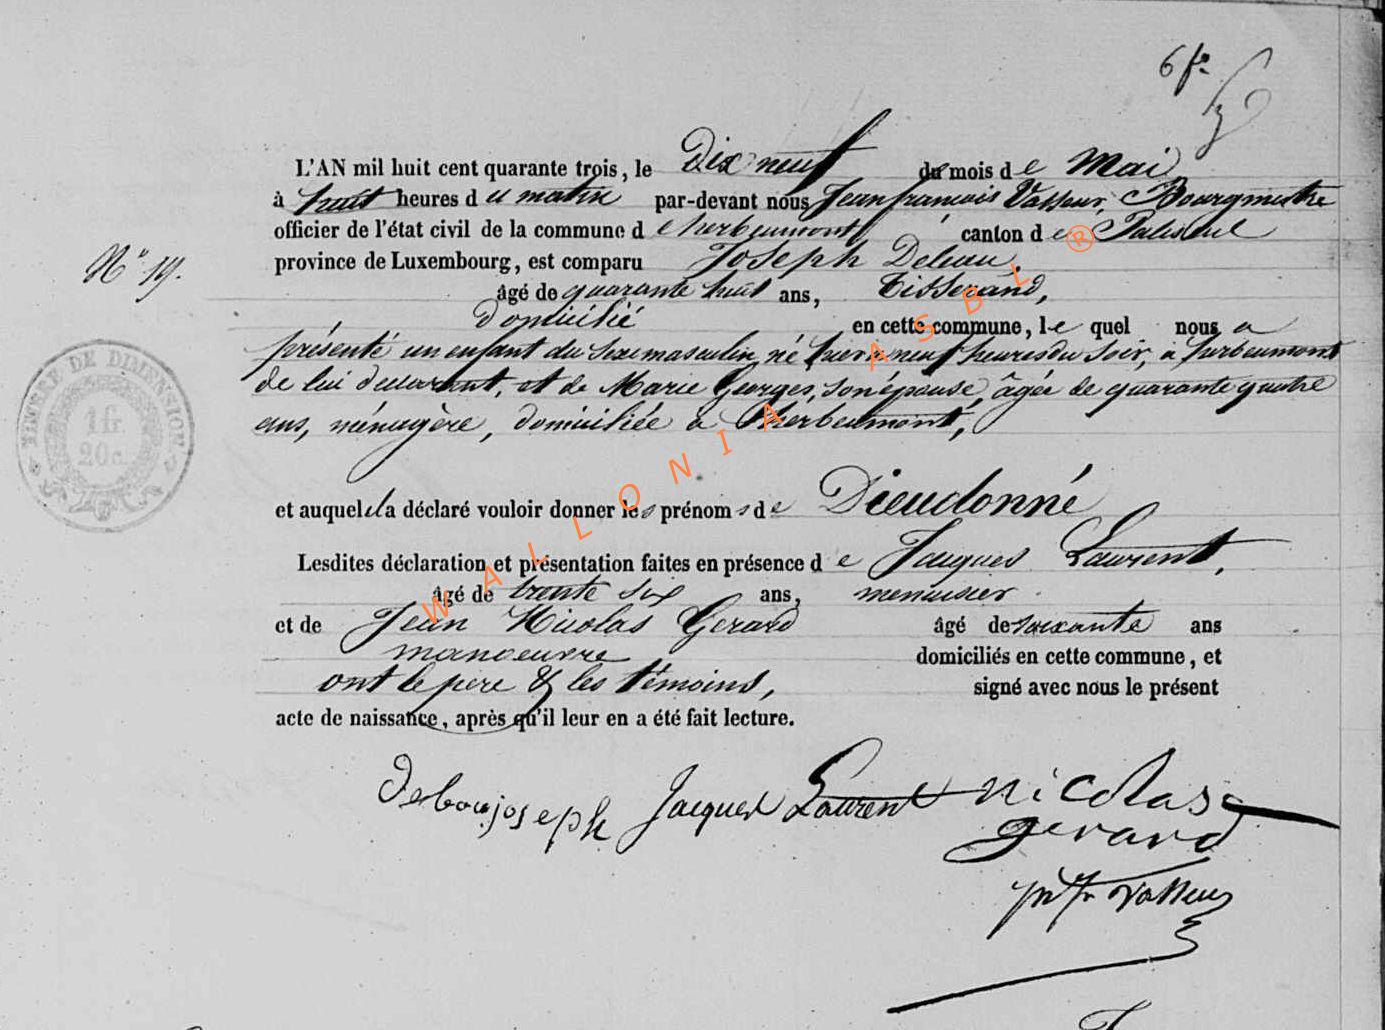 6 fo
L'AN mil huit cent quarante trois, le Dix neuf du mois de Mai
à huit heures du matin par-devant nous Jean francois Vasseur, Bourgmestre
officier de l'état civil de la commune d'herbeumont, canton de Paliseul
province de Luxembourg, est comparu Joseph Debeau,
No 19.
âgé de quarante huit ans, Tisserand,
domicilié en cette commune, lequel nous a
présenté un enfant du sexe masculin, né hier à neuf heures du soir, à herbeumont
de lui déclarant, et de Marie Georges, son épouse, âgée de quarante quatre
ans, ménagère, domiciliée à herbeumont,
et auquel il a déclaré vouloir donner les prénoms de Dieudonné
Lesdites déclaration et présentation faites en présence de Jacques Laurent,
âgé de trente six ans, menuisier
et de Jean Nicolas Gerard âgé de soixante ans
manoeuvre domiciliés en cette commune, et
ont le père & les témoins, signé avec nous le présent
acte de naissance, après qu'il leur en a été fait lecture.
Joseph Jacques Laurent Nicolas
gerard
Vasseur
TIMBRE DE DIMENSION
1 fr.
20 c.
WALLONIA ASBL ®